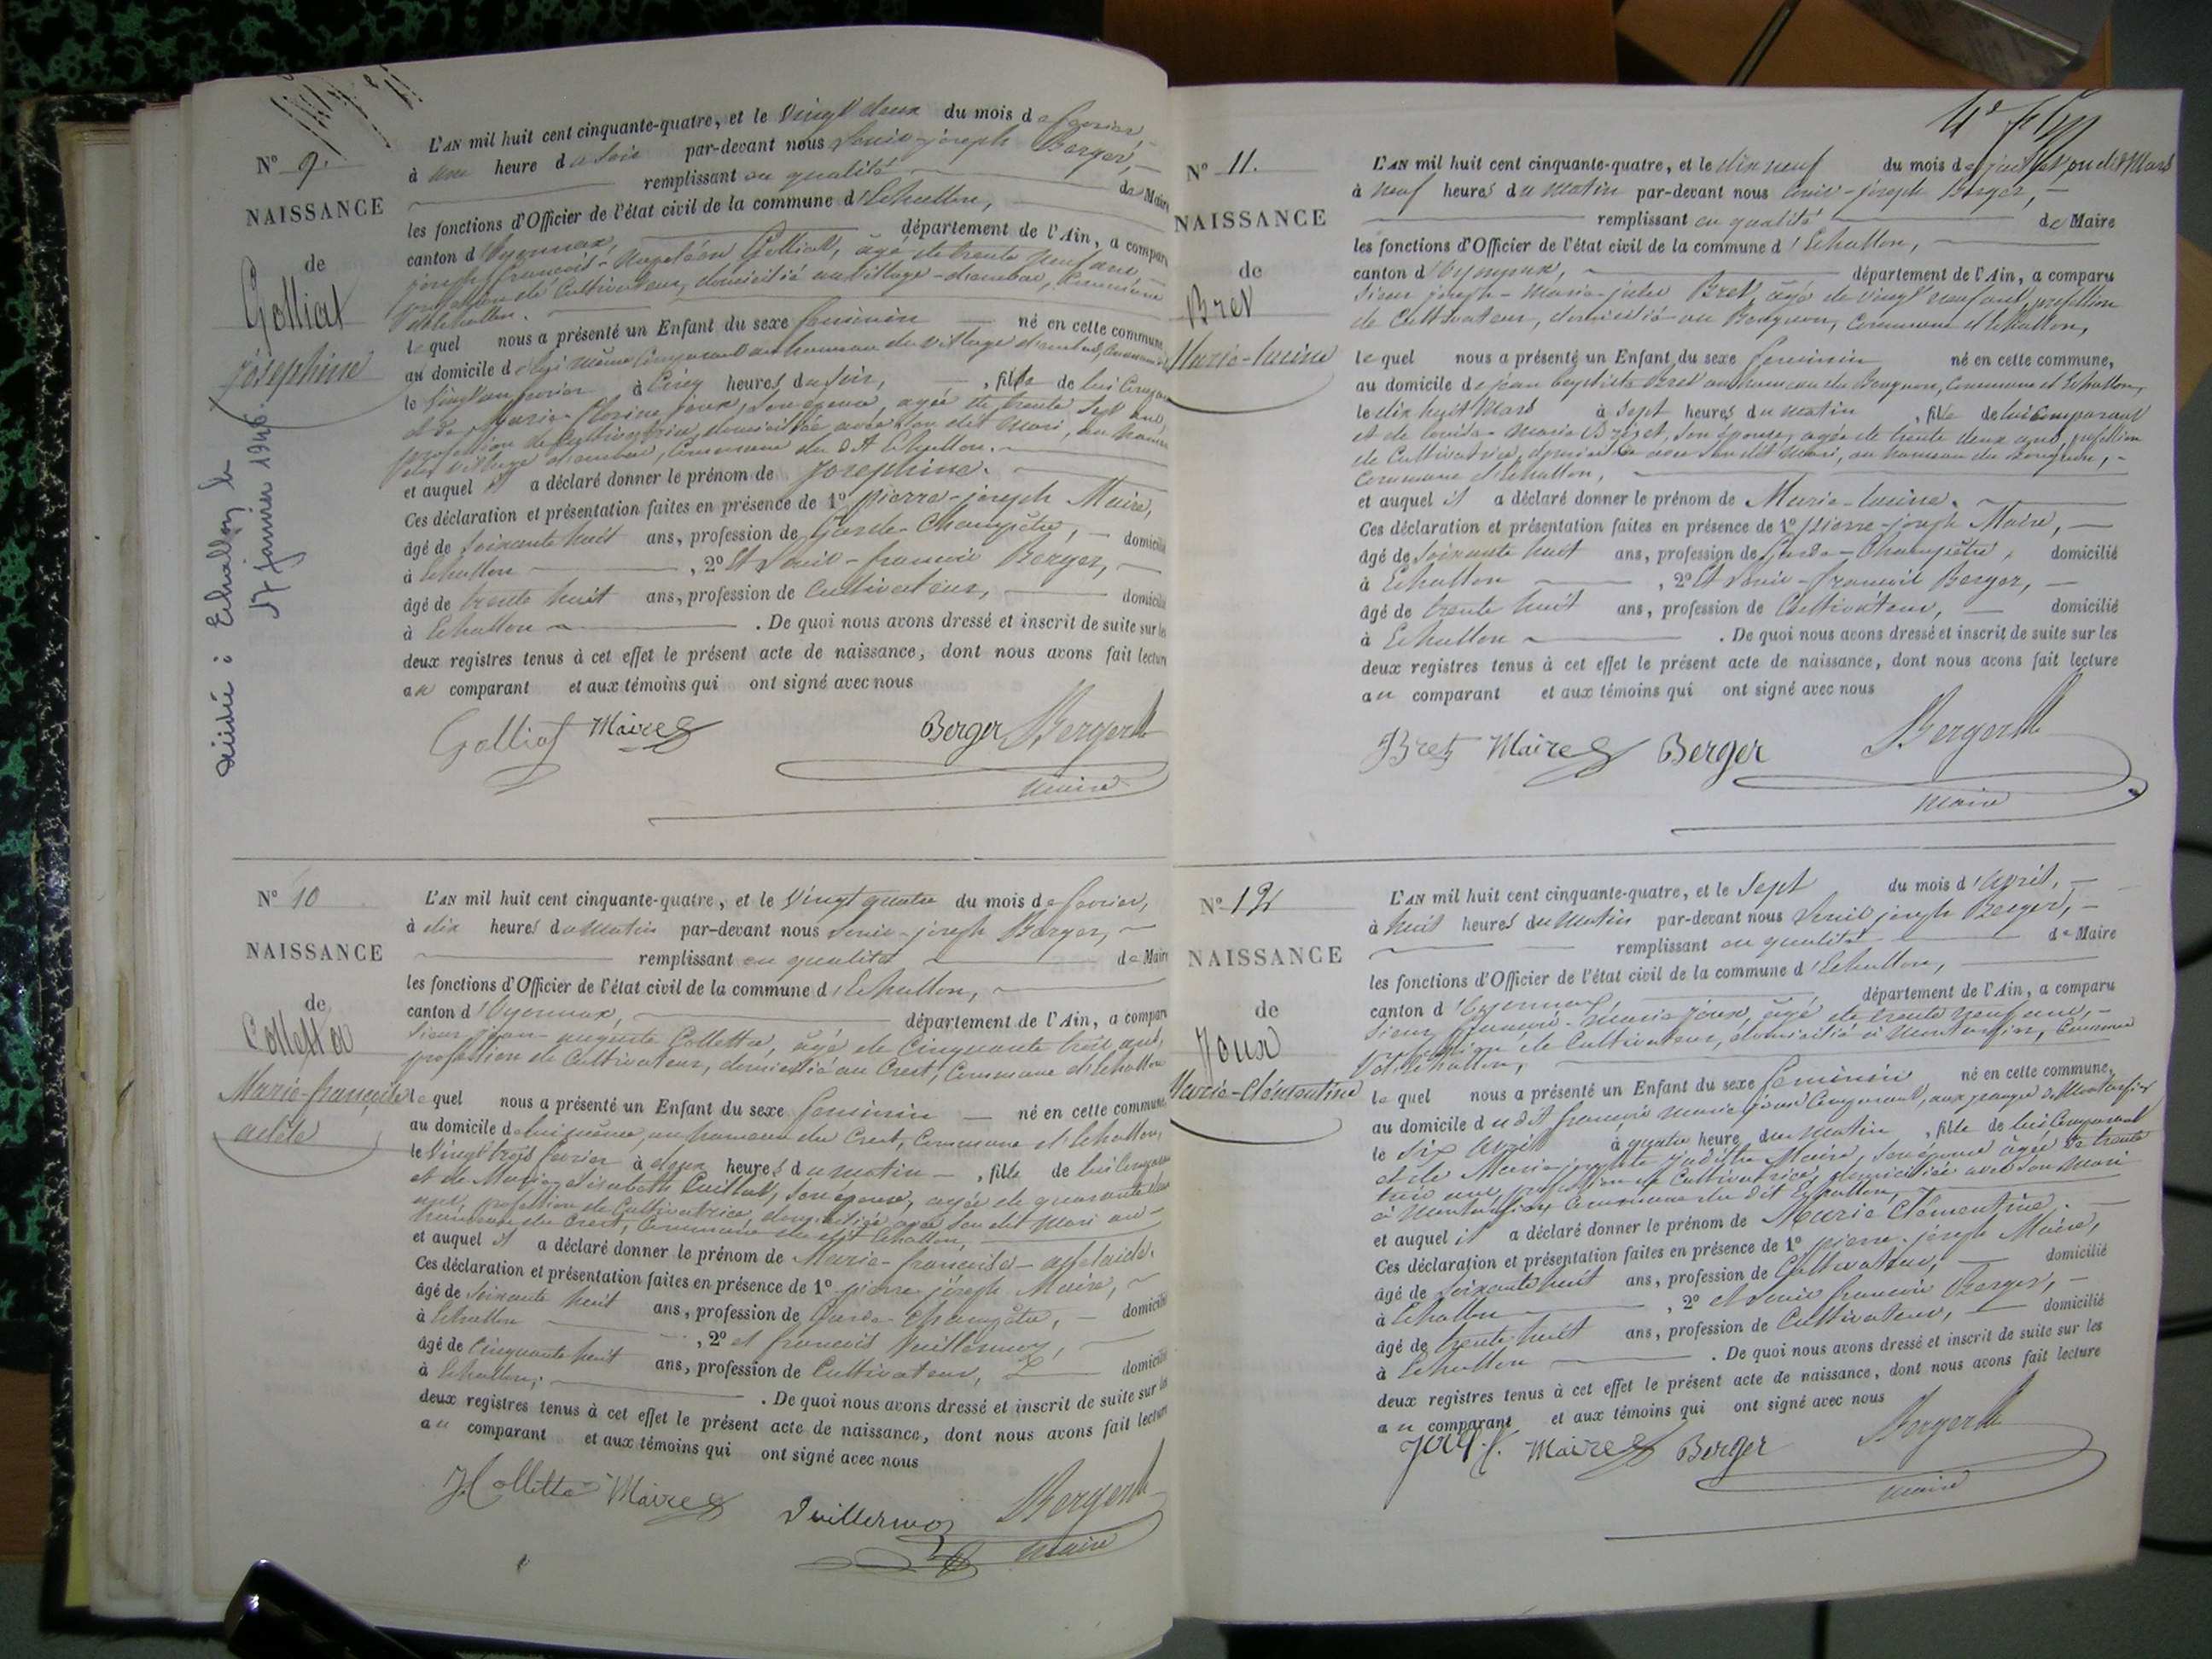 N° 9.
NAISSANCE
de
Golliat
Joséphine
décédée : Echallon le
17 janvier 1946.
L'AN mil huit cent cinquante-quatre, et le Vingt deux du mois de fevrier
à une heure du soir par-devant nous Louis-joseph Berger,
remplissant en qualité de Maire
les fonctions d'Officier de l'état civil de la commune d'Echallon,
canton d'Oyonnax, département de l'Ain, a comparu
joseph françois-Napoléon Golliat, âgé de trente neuf ans
profession de Cultivateur, domicilié au village-d'embas, Commune
d'Echallon.
lequel nous a présenté un Enfant du sexe feminin né en cette commune,
au domicile de lui même Comparant au hameau du village d'embas,
le Vingt un fevrier à Cinq heures du soir, , fille de lui Comparant
et de Marie Josine joux, son épouse, agée de trente sept ans,
profession de Cultivatrice, domiciliée avec son dit Mari, au hameau
du village d'embas, Commune du dit Echallon.
et auquel il a déclaré donner le prénom de Josephine.
Ces déclaration et présentation faites en présence de 1° pierre-joseph Maire,
âgé de soixante huit ans, profession de Garde-Champêtre, domicilié
à Echallon , 2° Et Louis-francois Berger,
âgé de trente huit ans, profession de Cultivateur, domicilié
à Echallon . De quoi nous avons dressé et inscrit de suite sur les
deux registres tenus à cet effet le présent acte de naissance, dont nous avons fait lecture
au comparant et aux témoins qui ont signé avec nous
Golliat Maire Berger Berger
maire
N° 10
NAISSANCE
de
Colletta
Marie-françoise
adele
L'AN mil huit cent cinquante-quatre, et le Vingt quatre du mois de fevrier,
à dix heures du matin par-devant nous Louis-joseph Berger,
remplissant en qualité de Maire
les fonctions d'Officier de l'état civil de la commune d'Echallon,
canton d'Oyonnax, département de l'Ain, a comparu
Sieur jean-auguste Colletta, âgé de Cinquante trois ans,
profession de Cultivateur, domicilié au Crest, Commune d'Echallon
lequel nous a présenté un Enfant du sexe feminin né en cette commune,
au domicile de lui même, au hameau du Crest, Commune d'Echallon,
le Vingt trois fevrier à deux heures du matin , fille de lui Comparant
et de Marie-elisabeth Cuillat, son épouse, agée de quarante
ans, profession de Cultivatrice, domiciliée avec son dit Mari au
hameau du Crest, Commune du dit Echallon,
et auquel il a déclaré donner le prénom de Marie-francoise-adelaide.
Ces déclaration et présentation faites en présence de 1° pierre joseph Maire,
âgé de soixante huit ans, profession de Garde-champêtre, domicilié
à Echallon , 2° et francois Vuillermoz,
âgé de cinquante huit ans, profession de Cultivateur, domicilié
à Echallon, . De quoi nous avons dressé et inscrit de suite sur les
deux registres tenus à cet effet le présent acte de naissance, dont nous avons fait lecture
au comparant et aux témoins qui ont signé avec nous
Colletta Maire Vuillermoz Berger
maire
N° 11.
NAISSANCE
de
Bret
Marie-lucine
L'AN mil huit cent cinquante-quatre, et le dix neuf du mois de Mars
à neuf heures du matin par-devant nous Louis-joseph Berger,
remplissant en qualité de Maire
les fonctions d'Officier de l'état civil de la commune d'Echallon,
canton d'Oyonnax, département de l'Ain, a comparu
Sieur joseph-Marie-jules Bret, âgé de vingt neuf ans, profession
de Cultivateur, domicilié au Bougnon, Commune d'Echallon,
lequel nous a présenté un Enfant du sexe feminin né en cette commune,
au domicile de jean baptiste Bret au hameau du Bougnon, Commune d'Echallon,
le dix huit Mars à sept heures du matin , fille de lui Comparant
et de louise-Marie Brizet, son épouse, agée de trente deux ans, profession
de Cultivatrice, domiciliée avec son dit Mari, au hameau du Bougnon,
Commune d'Echallon,
et auquel il a déclaré donner le prénom de Marie-lucine.
Ces déclaration et présentation faites en présence de 1° pierre-joseph Maire,
âgé de soixante huit ans, profession de Garde-Champêtre, domicilié
à Echallon , 2° Et Louis-francois Berger,
âgé de trente huit ans, profession de Cultivateur, domicilié
à Echallon . De quoi nous avons dressé et inscrit de suite sur les
deux registres tenus à cet effet le présent acte de naissance, dont nous avons fait lecture
au comparant et aux témoins qui ont signé avec nous
Bret Maire Berger Berger
maire
N° 12
NAISSANCE
de
Joux
Marie-Clémentine
L'AN mil huit cent cinquante-quatre, et le Sept du mois d'Avril,
à huit heures du matin par-devant nous Louis joseph Berger,
remplissant en qualité de Maire
les fonctions d'Officier de l'état civil de la commune d'Echallon,
canton d'Oyonnax, département de l'Ain, a comparu
Sieur francois-Marie joux, âgé de trente neuf ans,
profession de Cultivateur, domicilié à Montanfier, Commune
d'Echallon,
lequel nous a présenté un Enfant du sexe feminin né en cette commune,
au domicile du dit françois marie joux Comparant, aux granges de Montanfier
le six avril à quatre heures du matin , fille de lui Comparant
et de Marie-josephte judithe Maire, son épouse agée de trente
trois ans, profession de Cultivatrice, domiciliée avec son Mari
à Montanfier, Commune du dit Echallon,
et auquel il a déclaré donner le prénom de Marie Clémentine.
Ces déclaration et présentation faites en présence de 1° pierre-joseph Maire,
âgé de soixante huit ans, profession de Cultivateur, domicilié
à Echallon , 2° et Louis francois Berger,
âgé de trente huit ans, profession de Cultivateur, domicilié
à Echallon . De quoi nous avons dressé et inscrit de suite sur les
deux registres tenus à cet effet le présent acte de naissance, dont nous avons fait lecture
au comparant et aux témoins qui ont signé avec nous
Joux f. Maire Berger Berger
maire